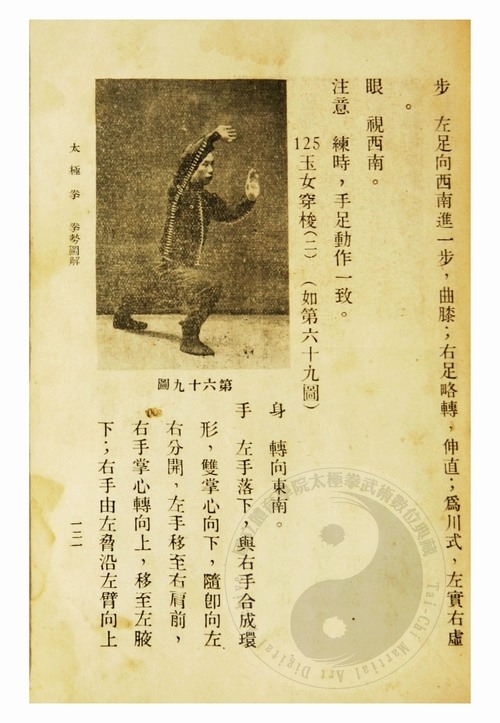 步　左足向西南進一步，曲膝；右足略轉，伸直；爲川式，左實右虛
。
眼　視西南。
注意　練時，手足動作一致。
125玉女穿梭（二）（如第六十九圖）
身　轉向東南。
手　左手落下，與右手合成環
形，雙掌心向下，隨卽向左
右分開，左手移至右肩前，
右手掌心轉向上，移至左腋
下；右手由左脅沿左臂向上
第六十九圖
太極拳　拳勢圖解
一二一
院太極拳武術數位典藏
Tai-Chi Martial Art Digital